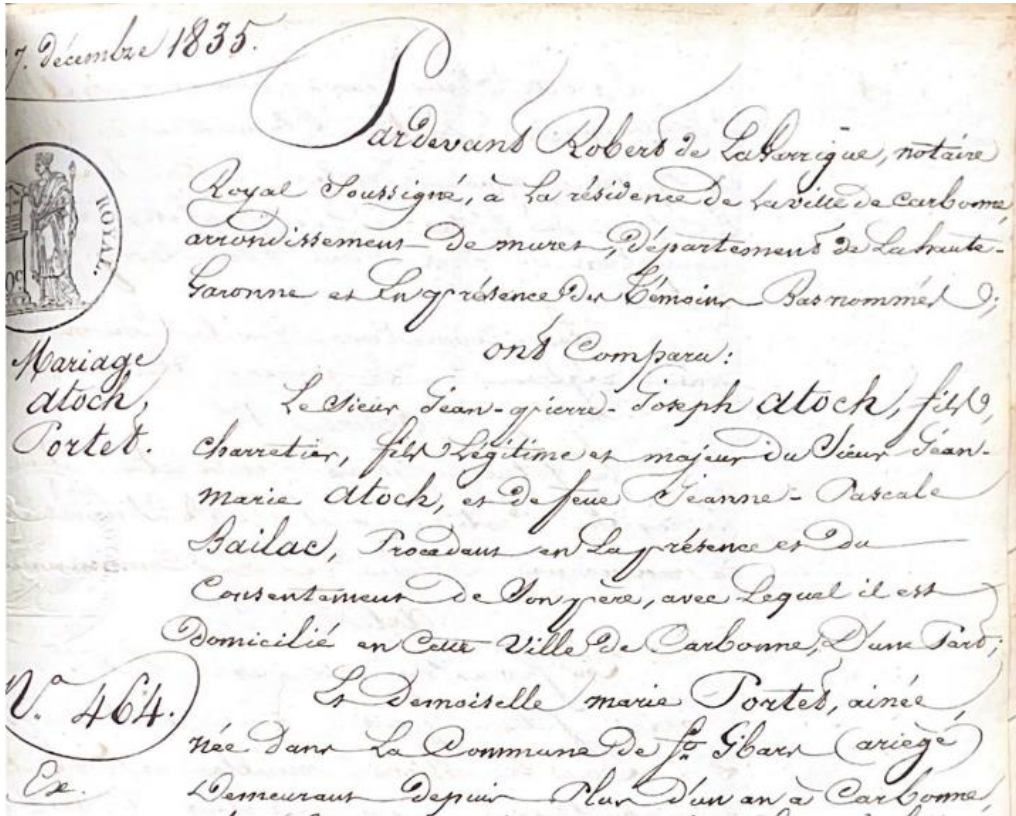 7. décembre 1835.
Pardevant Robert de Lagarrigue, notaire
Royal Soussigné, à La résidence de La ville de Carbonne,
arrondissement de muret, département de La haute-
Garonne et En présence des Témoins Basnommés;
ont Comparu:
Le Sieur Jean-pierre-Joseph Atoch, fils,
charretier, fils Légitime et majeur du Sieur Jean-
marie Atoch, et de feue Jeanne-Pascale
Bailac, Procédant en La présence et Du
Consentement de Son père, avec Lequel il est
Domicilié en Cette Ville de Carbonne, D'une Part;
Et Demoiselle marie Portet, ainée,
née dans La Commune de St. Ybars (ariége)
Demeurant depuis Plus d'un an à Carbonne,
ROYAL.
Mariage
Atoch,
Portet.
N.a 464.
Ex.